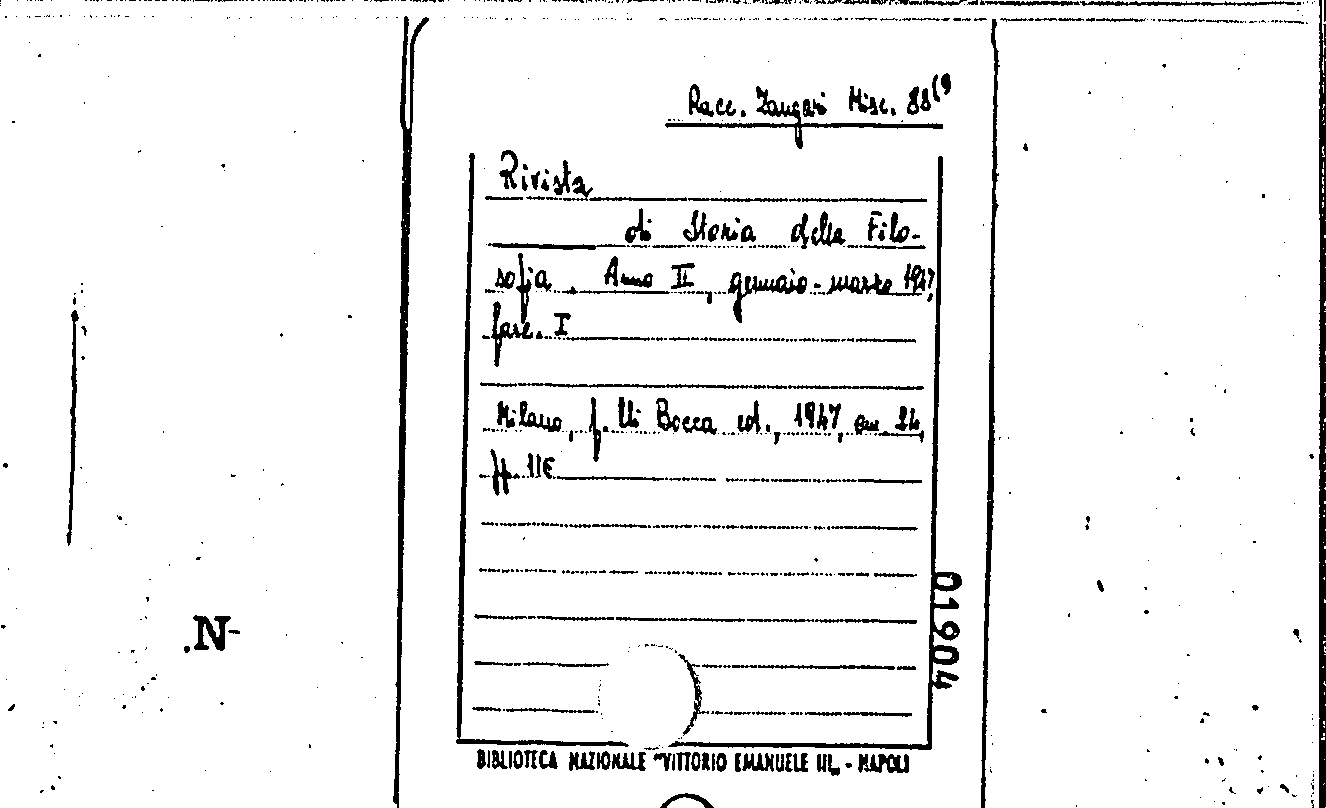 Racc. Zangari Misc. 88(9
Rivista
di Storia della Filo-
sofia. Anno II, gennaio-marzo 1947,
fasc. I
Milano, f.lli Bocca ed., 1947, cm. 24,
pp. 116
01904
.N-
BIBLIOTECA NAZIONALE "VITTORIO EMANUELE III„ - NAPOLI